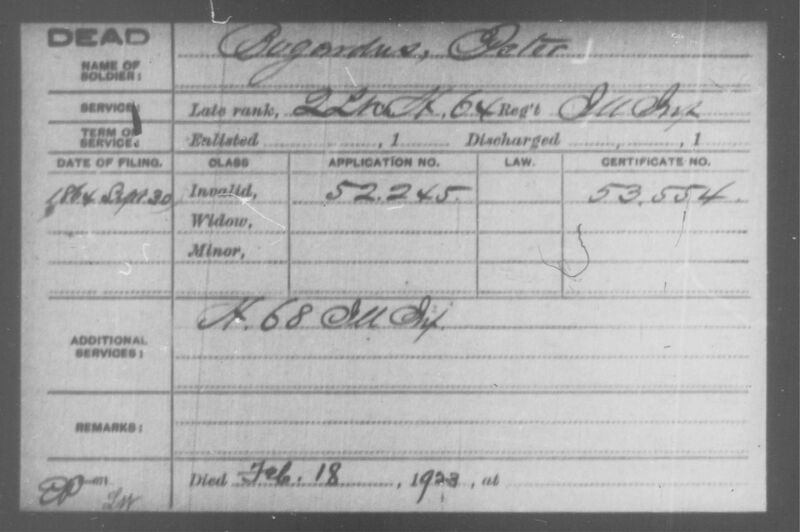 DEAD
NAME OF SOLDIER: Bogardus, Peter
SERVICE: Late rank, 2 Lt. K, 64 Reg't Ill Inf
TERM OF SERVICE: Enlisted , 1 Discharged , , 1
DATE OF FILING. CLASS APPLICATION NO. LAW. CERTIFICATE NO.
1864 Sept 30 Invalid, 52.245. 53.554.
Widow,
Minor,
ADDITIONAL SERVICES: K. 68 Ill Inf.
REMARKS:
Died Feb. 18 , 1923, at